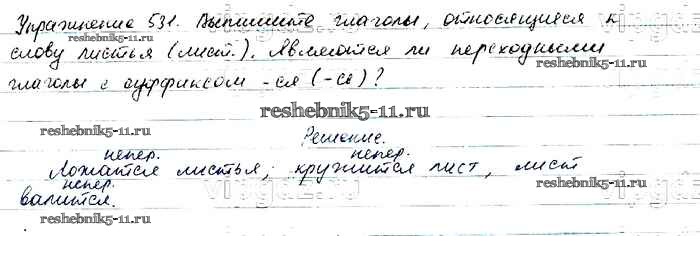 Упражнение 531. Выпишите глаголы, относящиеся к
слову листья (лист.). Являются ли переходными
reshebnik5-11.ru
глаголы с суффиксом -ся (-сь)?
reshebnik5-11.ru
reshebnik5-11.ru
Решение.
непер. непер.
Ложатся листья, кружится лист, лист
непер.
валится.
reshebnik5-11.ru
reshebnik5-11.ru